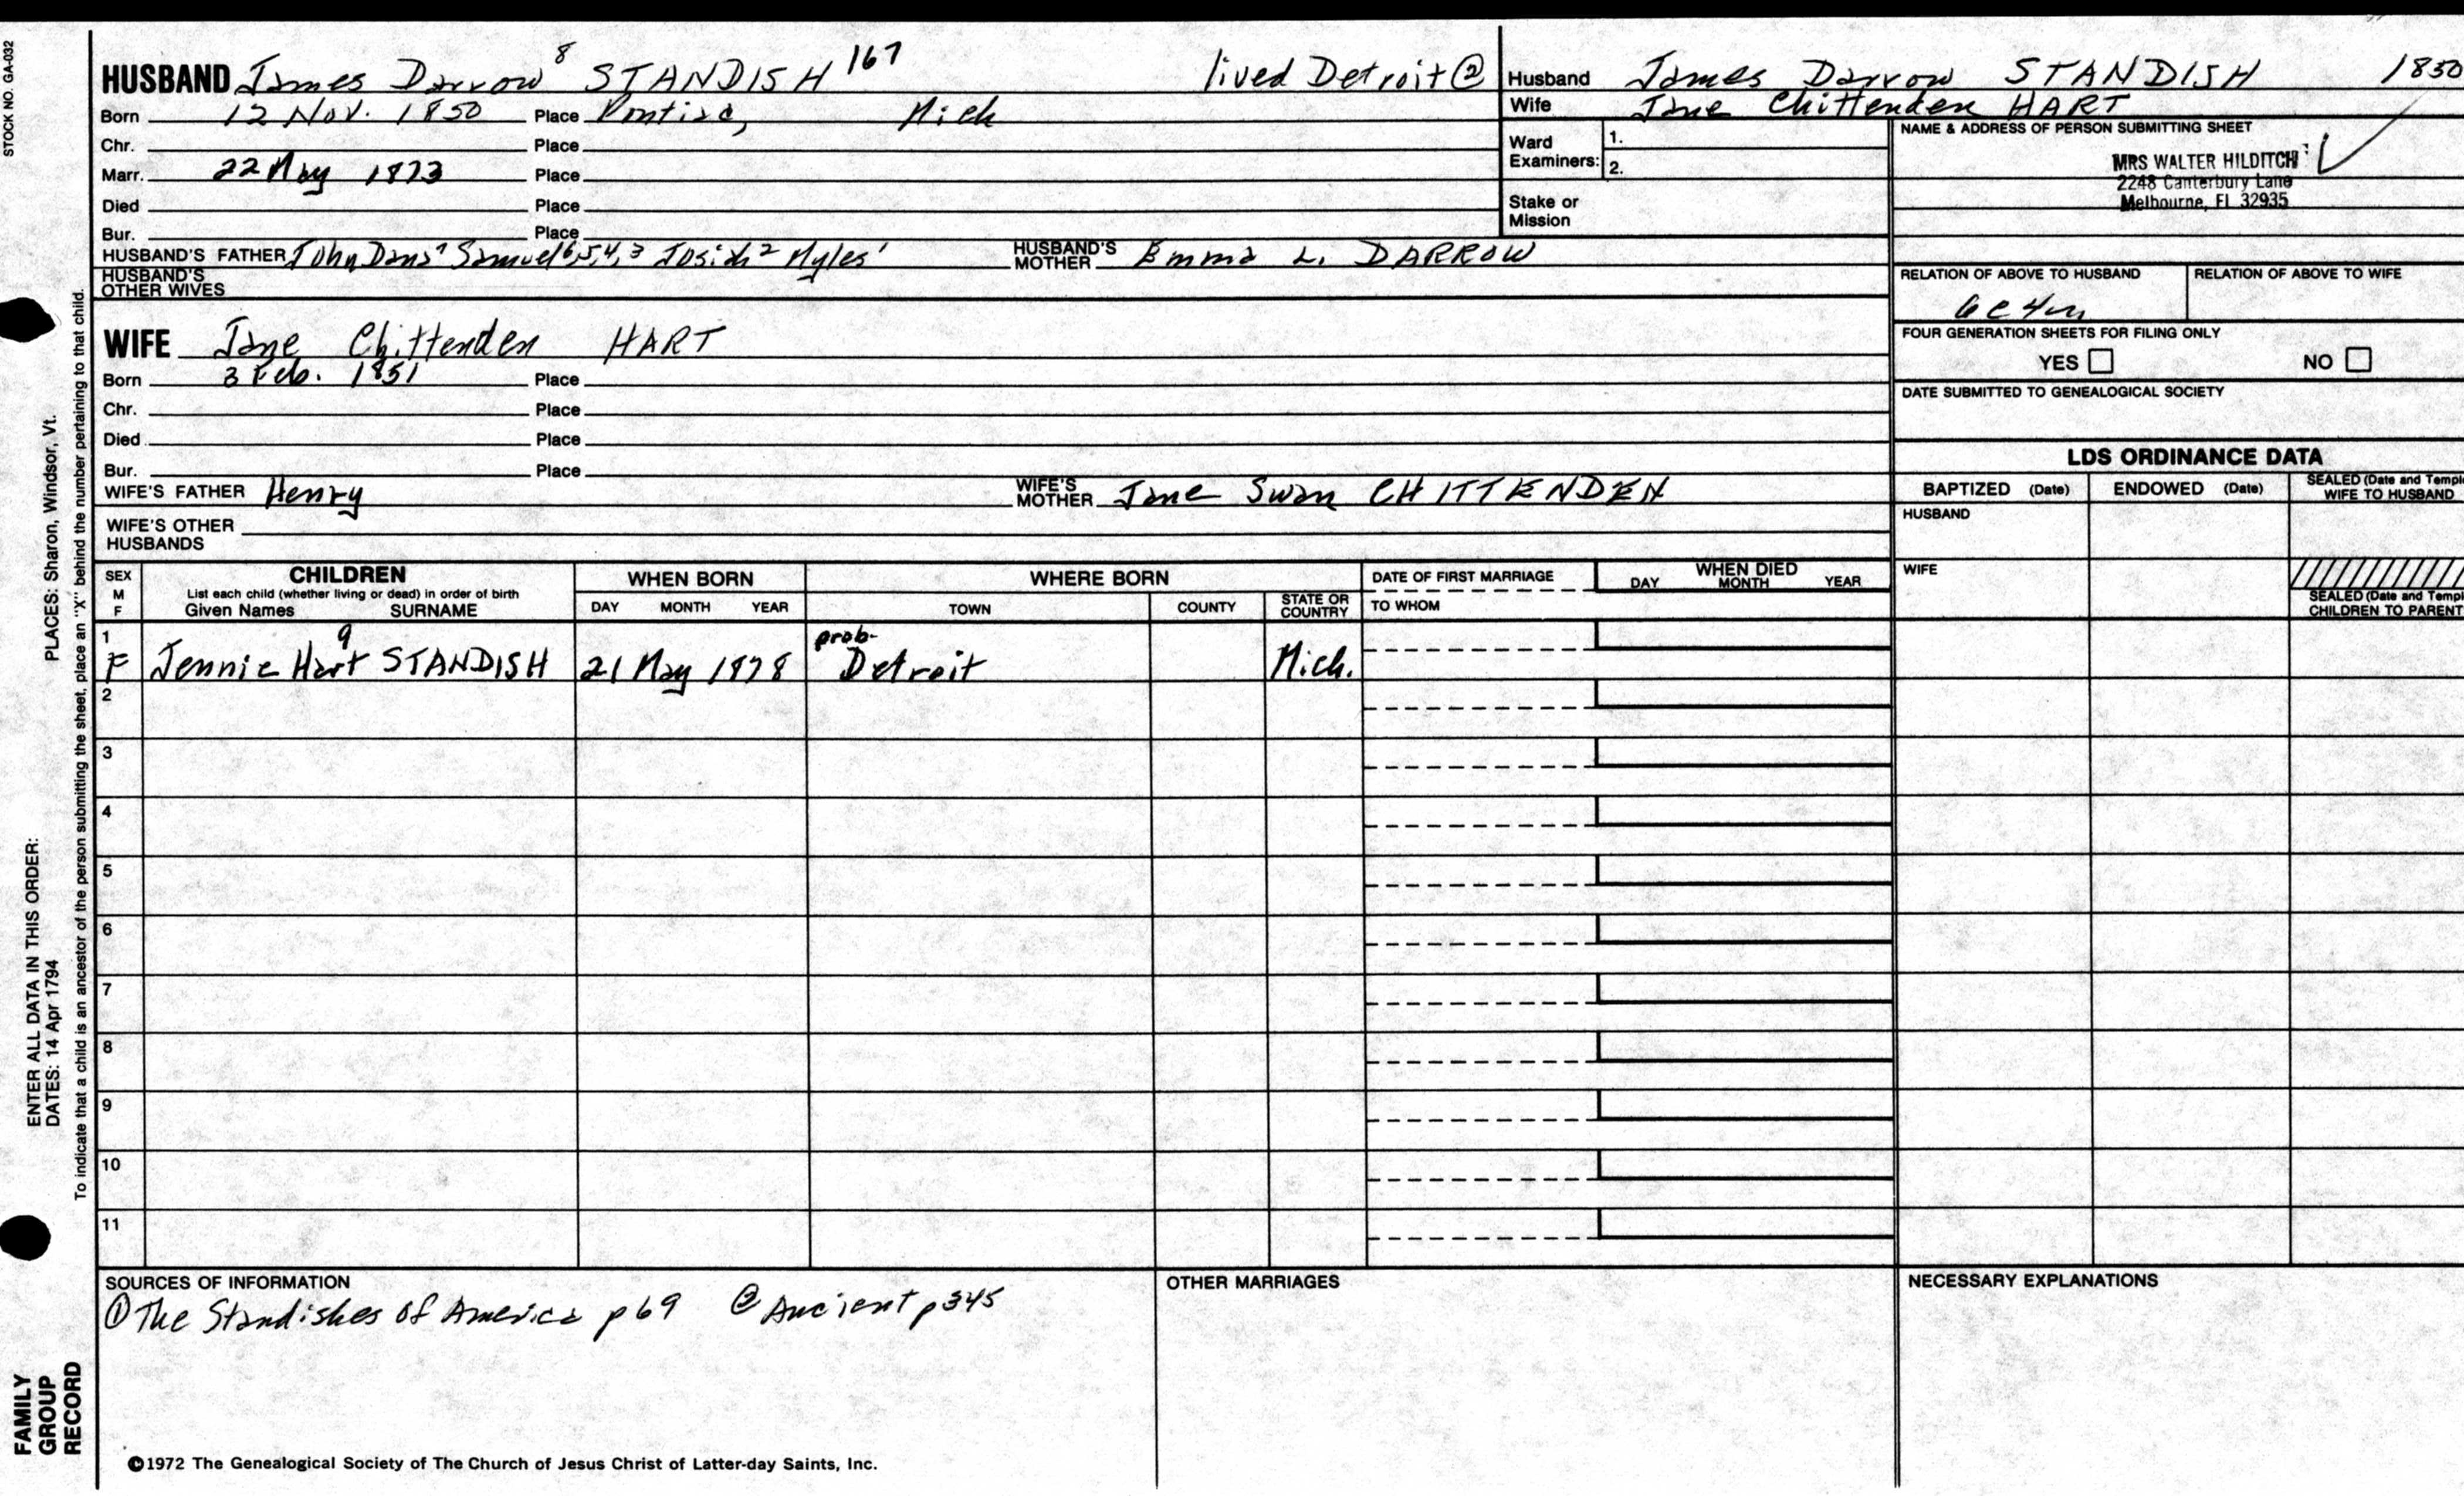 STOCK NO. GA-032
HUSBAND James Darrow⁸ STANDISH 167 lived Detroit ②
Born 12 Nov. 1850 Place Pontiac, Mich
Chr. Place
Marr. 22 May 1873 Place
Died Place
Bur. Place
HUSBAND'S FATHER John Dana⁷ Samuel⁶,⁵,⁴,³ Josiah² Myles¹ HUSBAND'S MOTHER Emma L. DARROW
HUSBAND'S OTHER WIVES
WIFE Jane Chittenden HART
Born 3 Feb. 1851 Place
Chr. Place
Died Place
Bur. Place
WIFE'S FATHER Henry WIFE'S MOTHER Jane Swan CHITTENDEN
WIFE'S OTHER HUSBANDS
Husband James Darrow STANDISH 1850
Wife Jane Chittenden HART
Ward Examiners: 1.
2.
Stake or Mission
NAME & ADDRESS OF PERSON SUBMITTING SHEET
MRS WALTER HILDITCH
2248 Canterbury Lane
Melbourne, Fl 32935
RELATION OF ABOVE TO HUSBAND RELATION OF ABOVE TO WIFE
6c4r
FOUR GENERATION SHEETS FOR FILING ONLY
YES NO
DATE SUBMITTED TO GENEALOGICAL SOCIETY
LDS ORDINANCE DATA
BAPTIZED (Date) ENDOWED (Date) SEALED (Date and Templ
WIFE TO HUSBAND
HUSBAND
WIFE
SEALED (Date and Templ
CHILDREN TO PARENT
SEX M F CHILDREN WHEN BORN WHERE BORN DATE OF FIRST MARRIAGE WHEN DIED
List each child (whether living or dead) in order of birth
Given Names SURNAME DAY MONTH YEAR TOWN COUNTY STATE OR COUNTRY TO WHOM DAY MONTH YEAR
1 F Jennie Hart⁹ STANDISH 21 May 1878 prob- Detroit Mich.
2
3
4
5
6
7
8
9
10
11
SOURCES OF INFORMATION OTHER MARRIAGES NECESSARY EXPLANATIONS
① The Standishes of America p 69 ② Ancient p 345
©1972 The Genealogical Society of The Church of Jesus Christ of Latter-day Saints, Inc.
FAMILY
GROUP
RECORD
ENTER ALL DATA IN THIS ORDER:
DATES: 14 Apr 1794 PLACES: Sharon, Windsor, Vt.
To indicate that a child is an ancestor of the person submitting the sheet, place an "X" behind the number pertaining to that child.